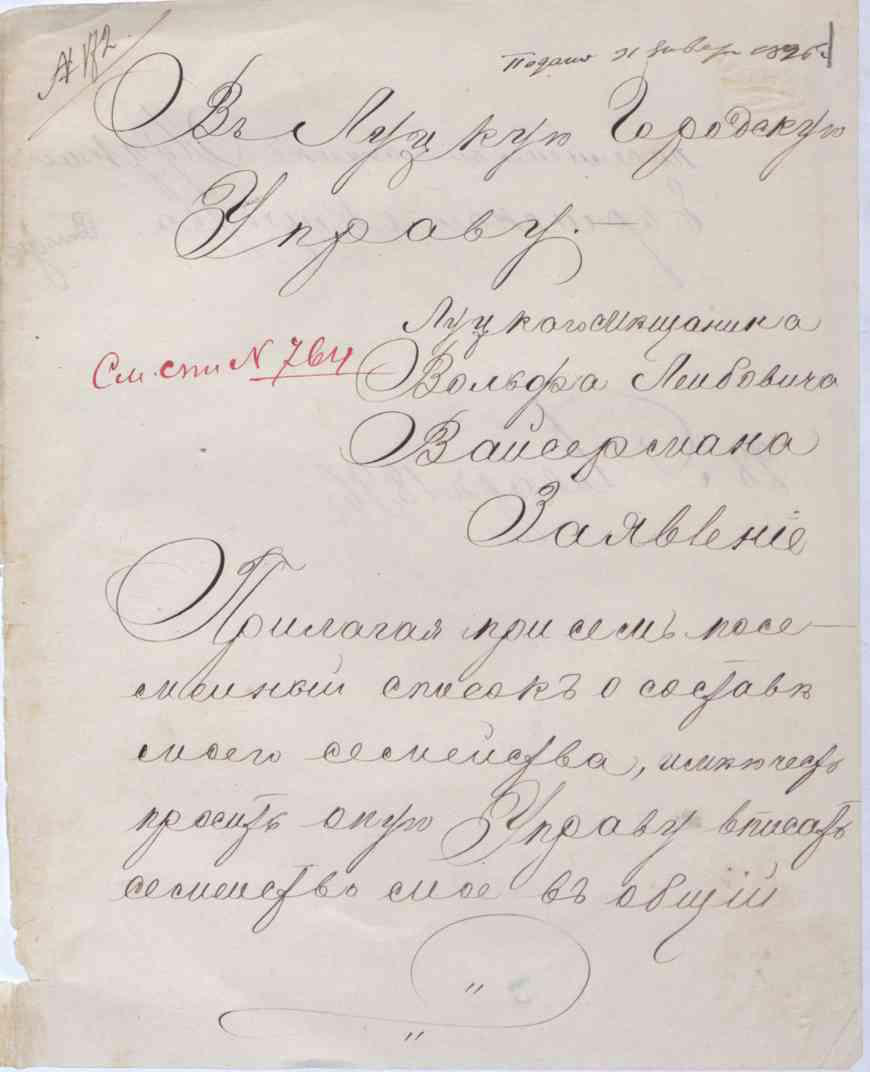 № 172.
Подано 31 Январ 1896 г.
Въ Луцкую Городскую
Управу.—
Луцкаго мѣщанина
См. ст № 764
Вольфа Лейбовича
Вайсермана
Заявленіе
Прилагая при семъ посе-
мейный списокъ о составѣ
моего семейства, имѣю честь
просить оную Управу вписать
семейство мое въ общій